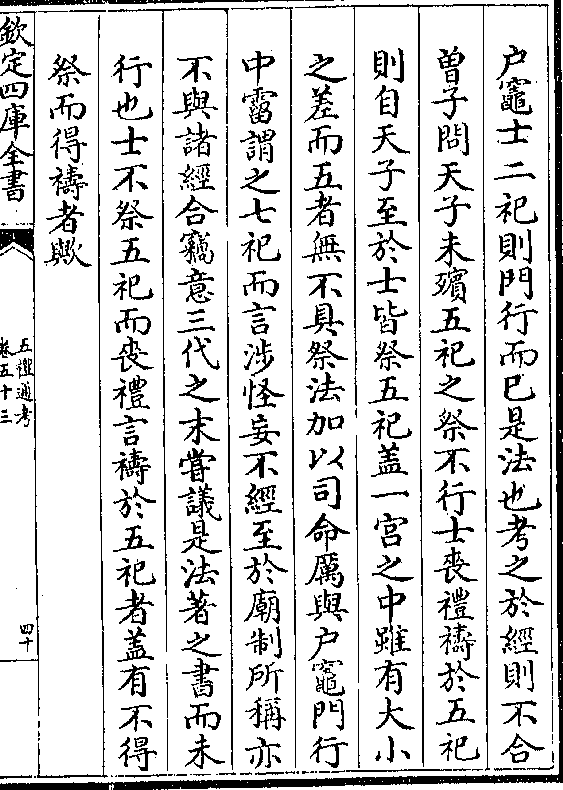 户竈士二祀則門行而已是法也考之於經則不合
曽子問天子未殯五祀之祭不行士喪禮禱於五祀
則自天子至於士皆祭五祀盖一宫之中雖有大小
之差而五者無不具祭法加以司命厲與户竈門行
中霤謂之七祀而言涉怪妄不經至於廟制所稱亦
不與諸經合竊意三代之末嘗議是法著之書而未
行也士不祭五祀而喪禮言禱於五祀者盖有不得
祭而得禱者歟
欽定四庫全書
五禮通考
卷五十三
四十